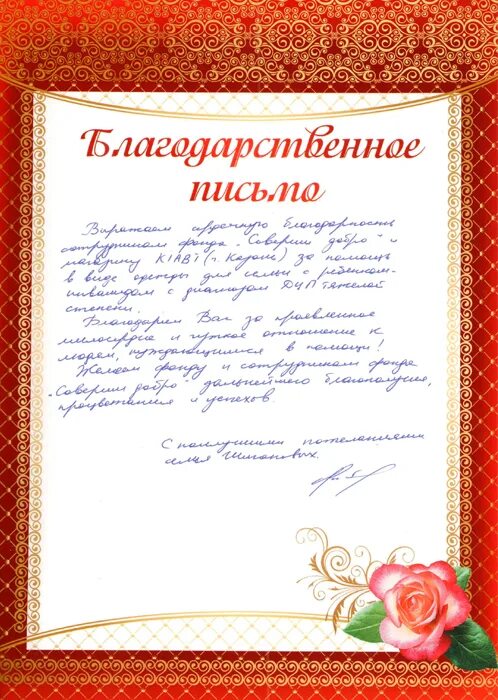 Благодарственное
письмо
Выражаем сердечную благодарность
сотрудникам фонда „Соверши добро" и
магазину KIABI (г. Королёв) за помощь
в виде одежды для семьи с ребёнком-
инвалидом с диагнозом ДЦП тяжелой
степени.
Благодарим Вас за проявленное
милосердие и чуткое отношение к
людям, нуждающимся в помощи!
Желаем фонду и сотрудникам фонда
„Соверши добро" дальнейшего благополучия,
процветания и успехов.
С наилучшими пожеланиями
семья